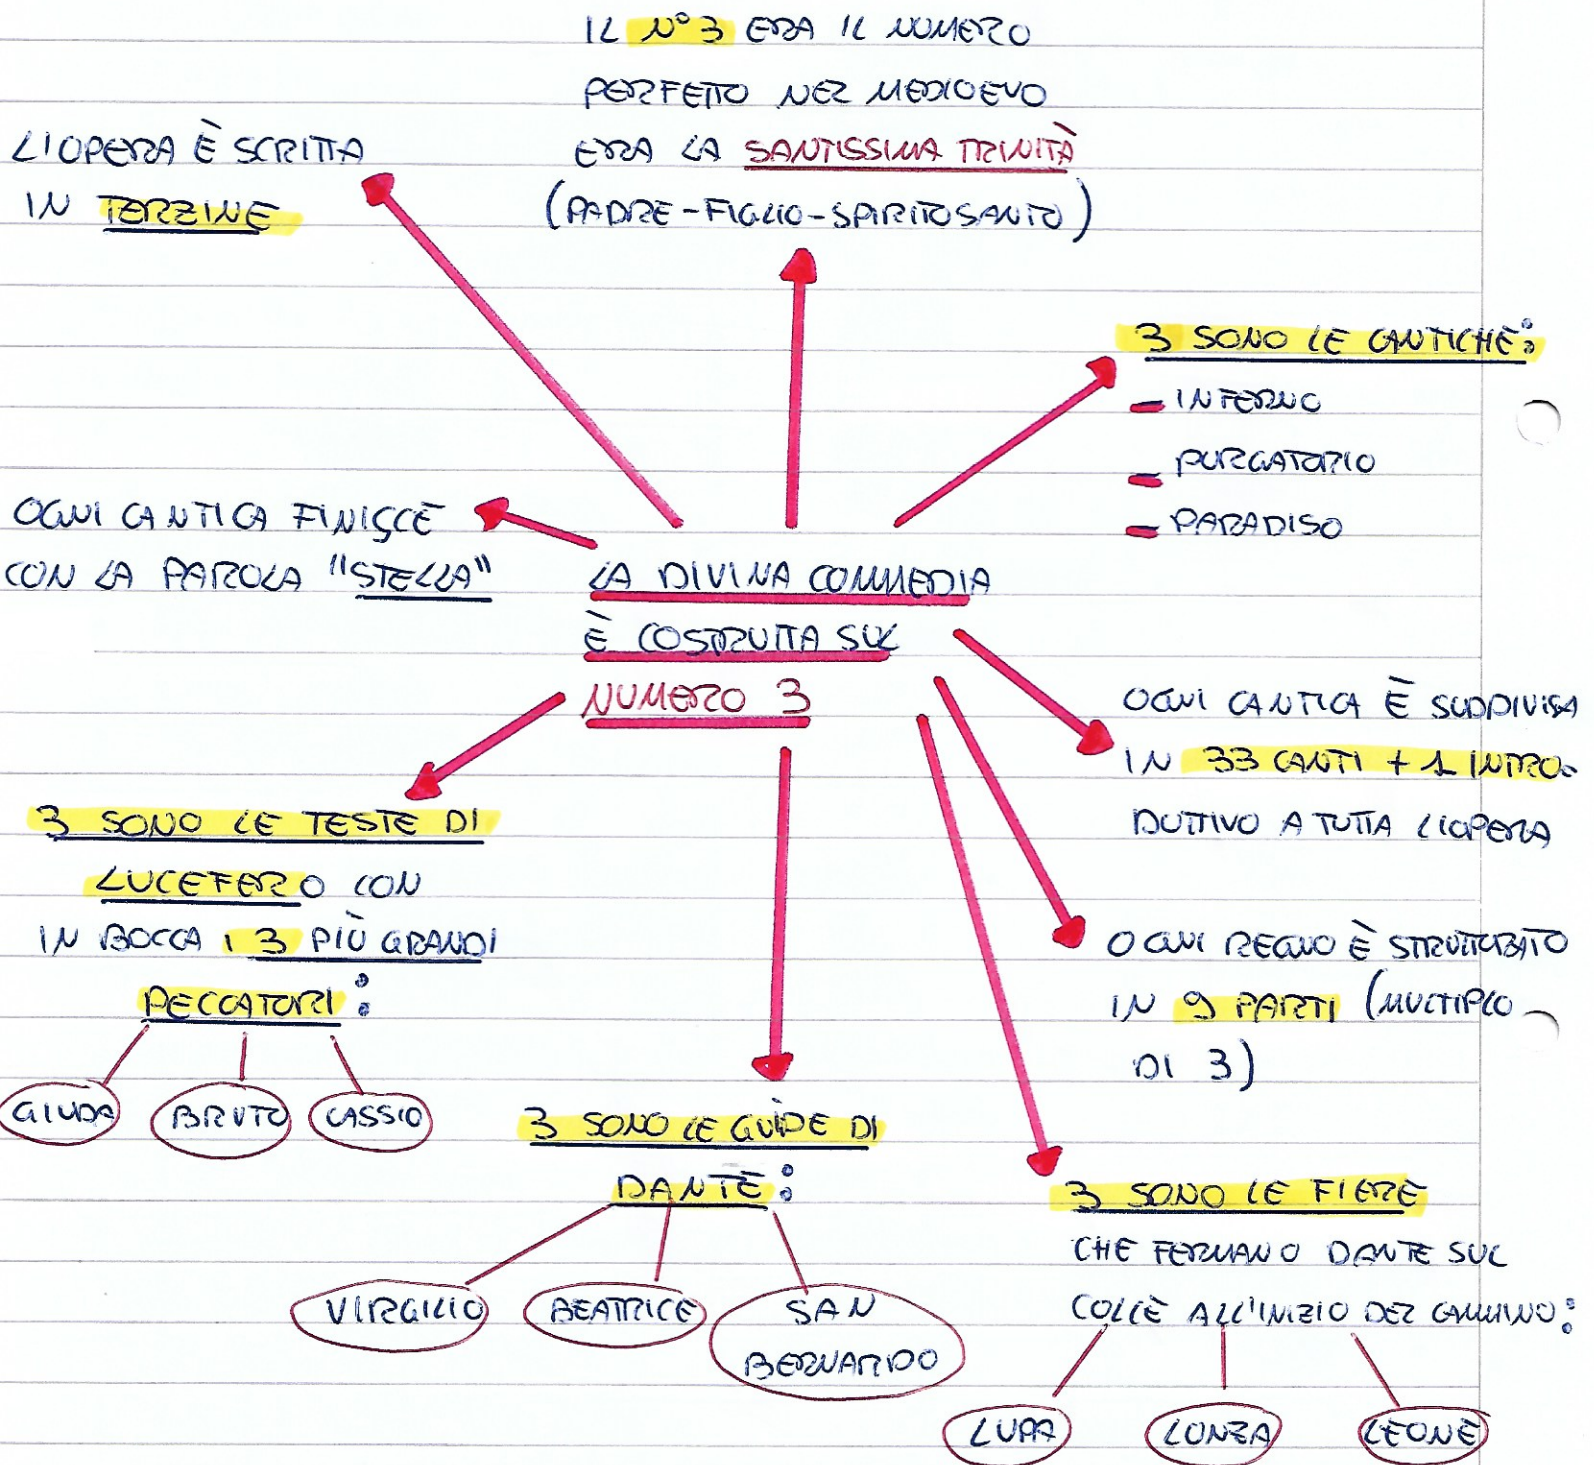 IL N° 3 ERA IL NUMERO
PERFETTO NEL MEDIOEVO
ERA LA SANTISSIMA TRINITÀ
(PADRE-FIGLIO-SPIRITO SANTO)
L'OPERA È SCRITTA
IN TERZINE
3 SONO LE CANTICHE:
- INFERNO
- PURGATORIO
- PARADISO
OGNI CANTICA FINISCE
CON LA PAROLA "STELLA"
LA DIVINA COMMEDIA
È COSTRUITA SUL
NUMERO 3
OGNI CANTICA È SUDDIVISA
IN 33 CANTI + 1 INTRO-
DUTTIVO A TUTTA L'OPERA
3 SONO LE TESTE DI
LUCEFERO CON
IN BOCCA I 3 PIÙ GRANDI
PECCATORI:
GIUDA BRUTO CASSIO
OGNI REGNO È STRUTTURATO
IN 9 PARTI (MULTIPLO
DI 3)
3 SONO LE GUIDE DI
DANTE:
VIRGILIO BEATRICE SAN
BERNARDO
3 SONO LE FIERE
CHE FERMANO DANTE SUL
COLLE ALL'INIZIO DEL CAMMINO:
LUPA LONZA LEONE